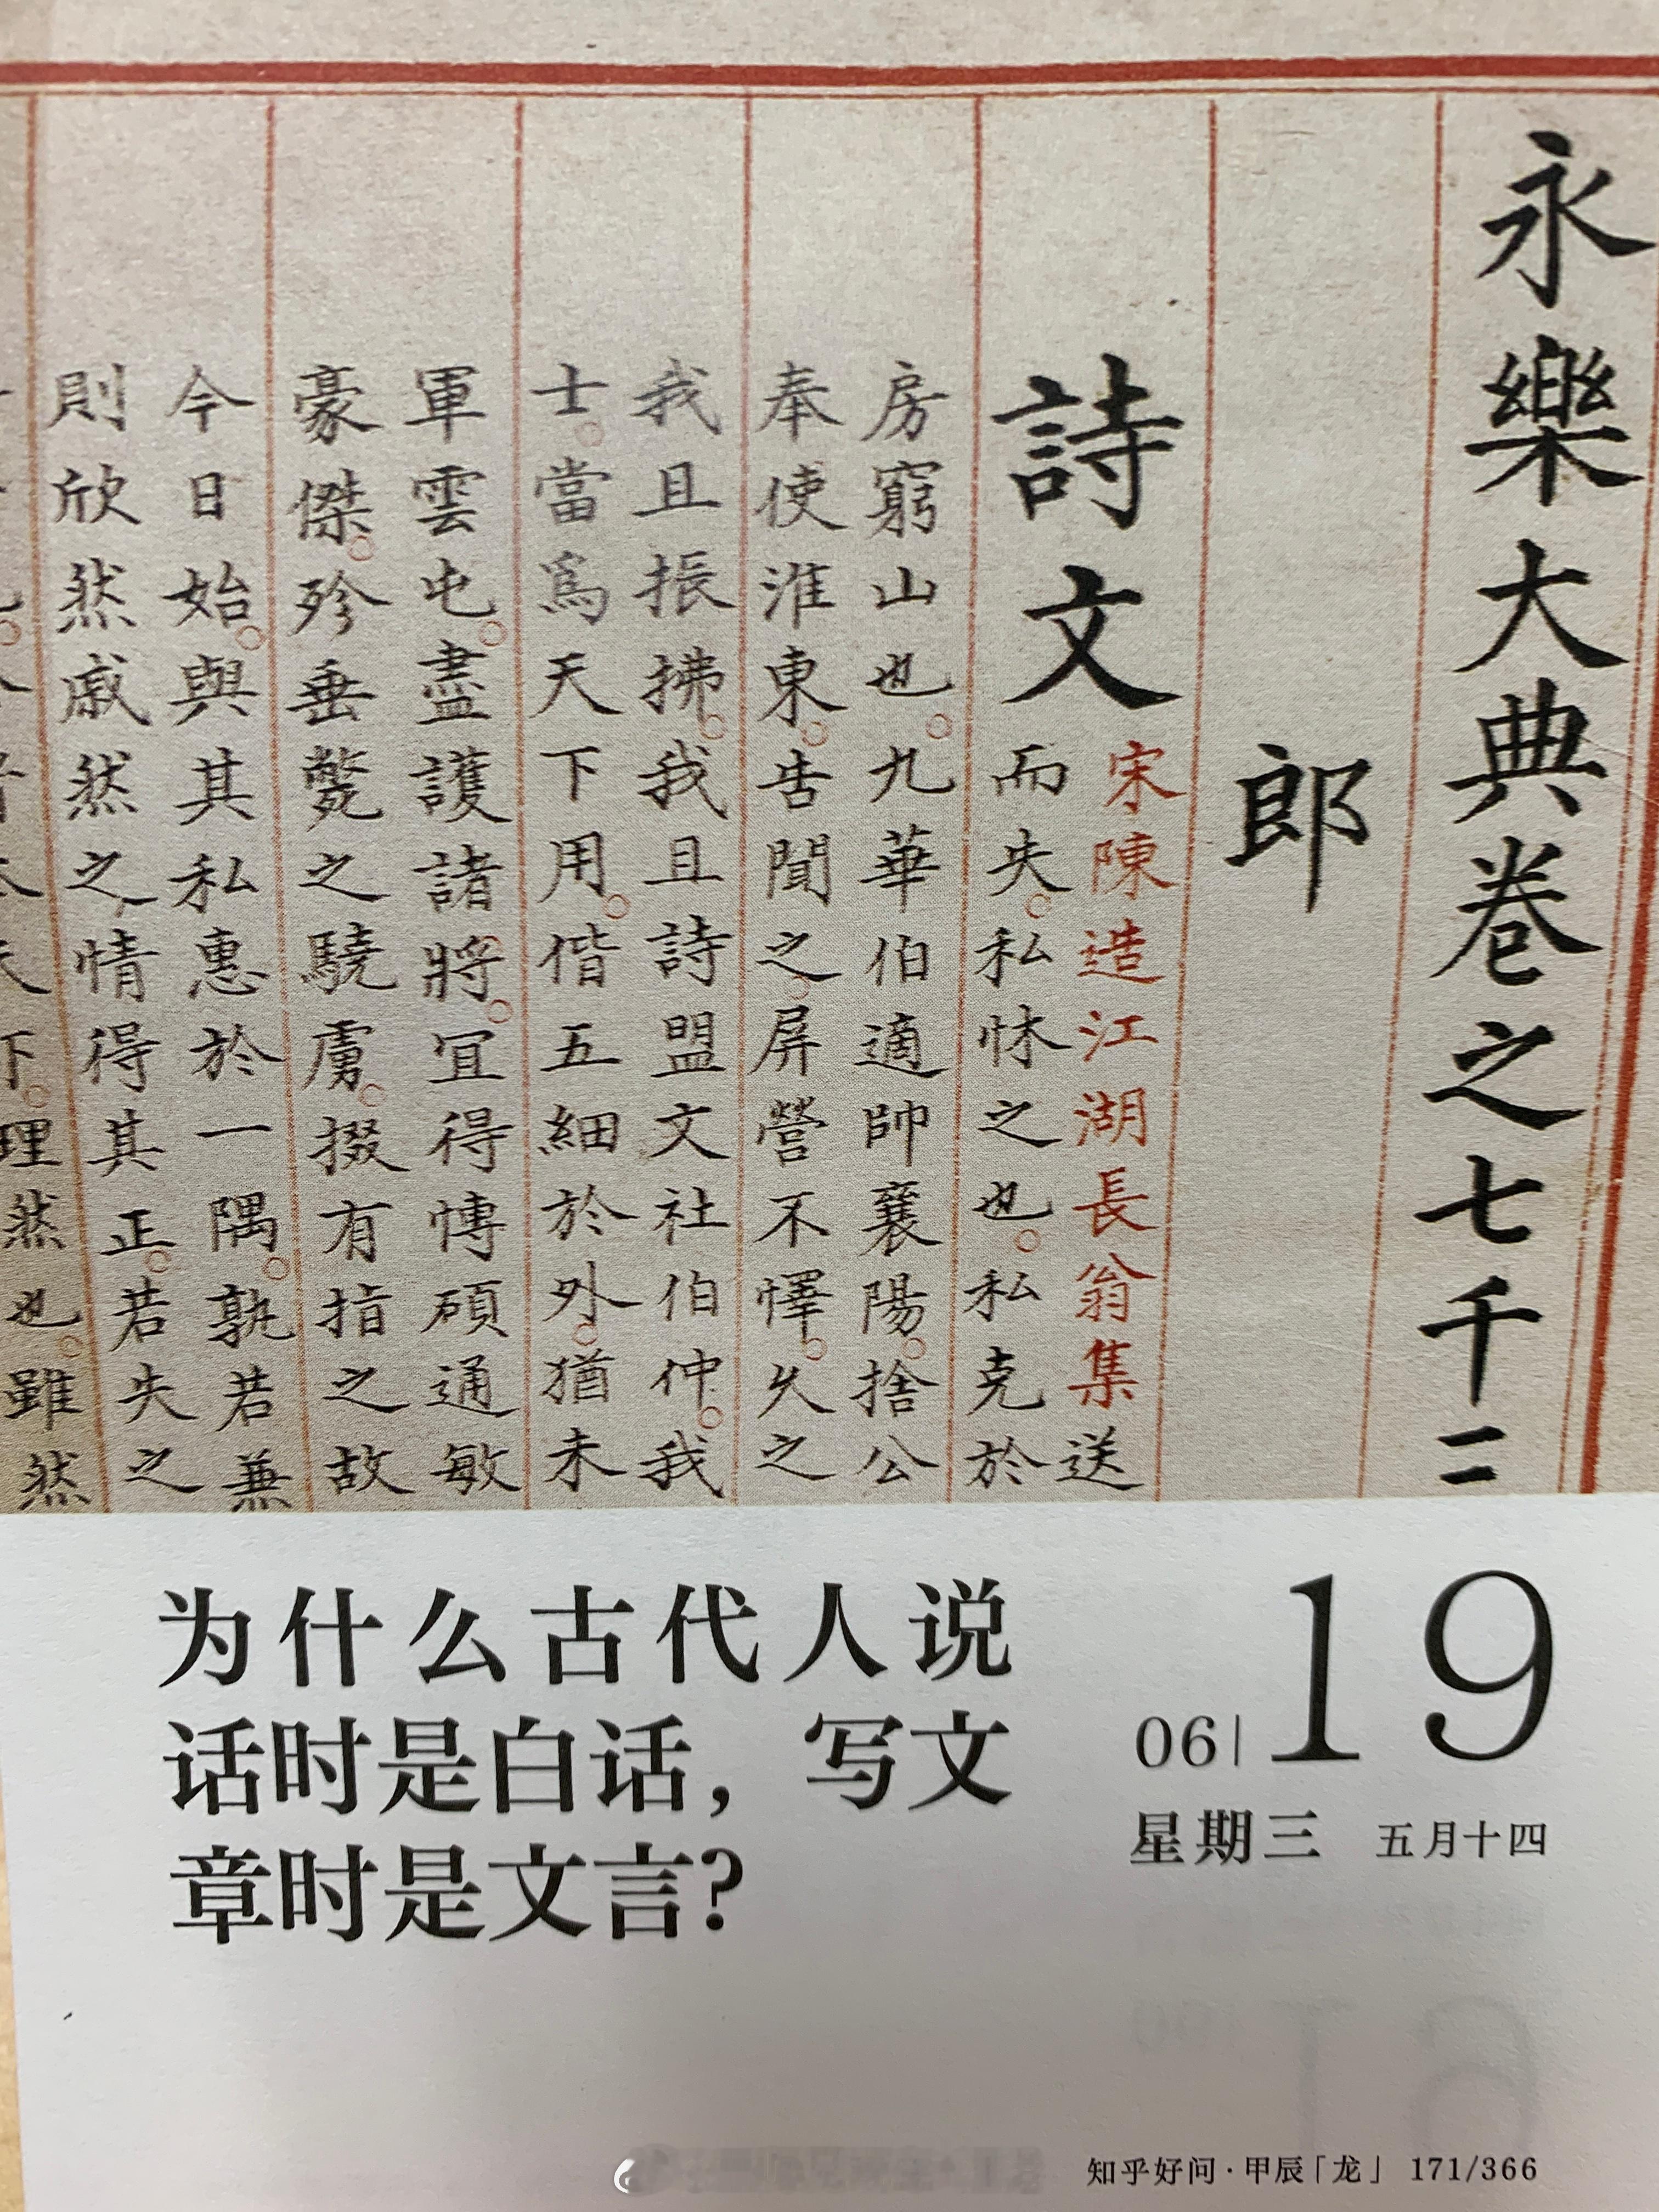 永樂大典卷之七千二
郎
詩文 宋陳造江湖長翁集送
而失。私怵之也。私克於
房窮山也。九華伯適帥襄陽。捨公
奉使淮東。告聞之。屏營不懌。久之
我且振拂。我且詩盟文社伯仲。我
士。當爲天下用。偕五細於外。猶未
軍雲屯。盡護諸將。宜得愽碩通敏
豪傑。殄垂斃之驍虜。掇有指之故
今日始。與其私惠於一隅。孰若兼
則欣然戚然之情得其正。若失之
下。理然也。雖然
为什么古代人说
话时是白话，写文
章时是文言？
06|19
星期三 五月十四
知乎好问·甲辰「龙」 171/366